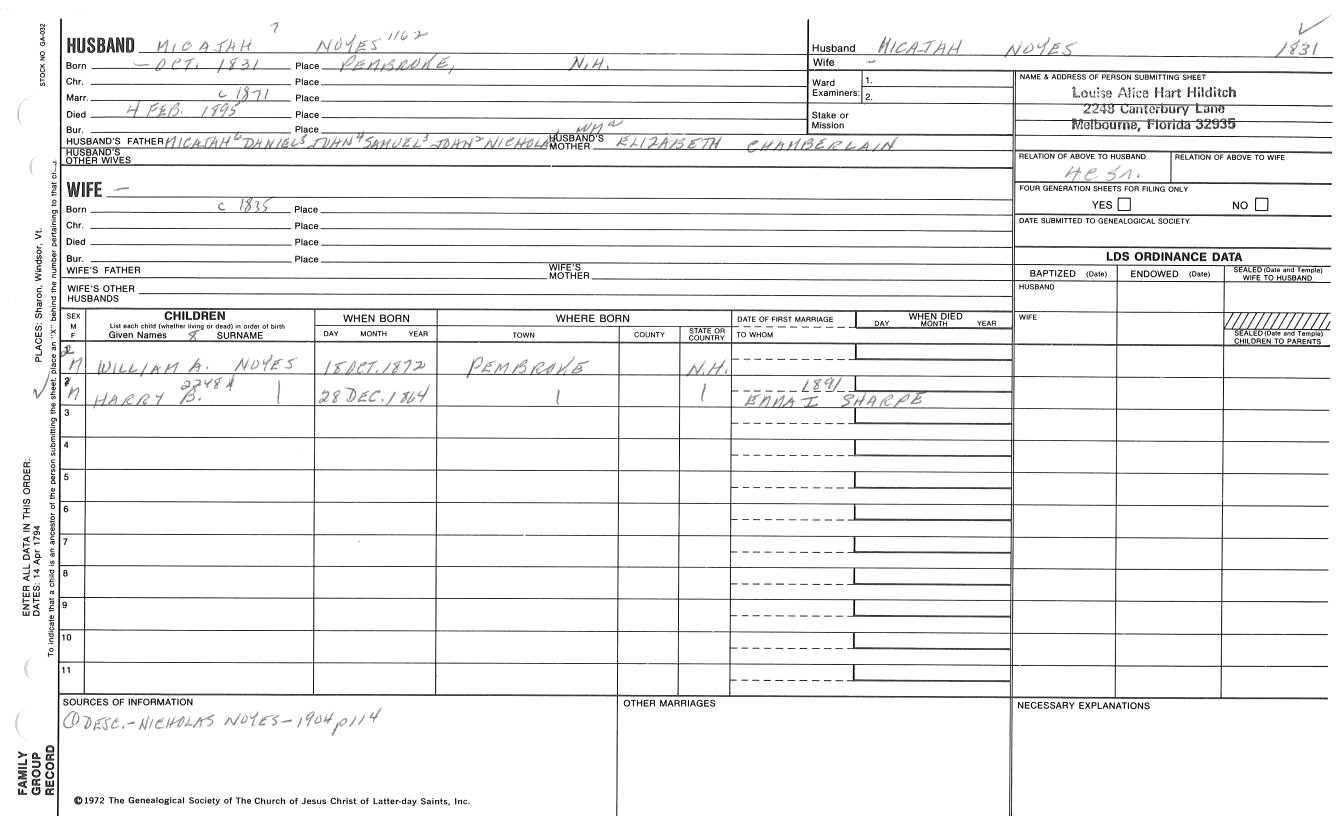 STOCK NO GA-032
7
HUSBAND MICAJAH NOYES 1162
Born — OCT. 1831 Place PEMBROKE, N.H.
Chr. Place
Marr. c 1871 Place
Died 4 FEB. 1895 Place
Bur. Place
HUSBAND'S FATHER MICAJAH6 DANIEL5 JOHN4 SAMUEL3 JOHN2 NICHOLAS1 WM a HUSBAND'S MOTHER ELIZABETH CHAMBERLAIN
HUSBAND'S OTHER WIVES
WIFE —
Born c 1835 Place
Chr. Place
Died Place
Bur. Place
WIFE'S FATHER WIFE'S MOTHER
WIFE'S OTHER HUSBANDS
Husband MICAJAH NOYES 1831
Wife –
Ward Examiners: 1. 2.
Stake or Mission
NAME & ADDRESS OF PERSON SUBMITTING SHEET
Louise Alice Hart Hilditch
2248 Canterbury Lane
Melbourne, Florida 32935
RELATION OF ABOVE TO HUSBAND RELATION OF ABOVE TO WIFE
FOUR GENERATION SHEETS FOR FILING ONLY
YES NO
DATE SUBMITTED TO GENEALOGICAL SOCIETY
LDS ORDINANCE DATA
BAPTIZED (Date) ENDOWED (Date) SEALED (Date and Temple) WIFE TO HUSBAND
HUSBAND
WIFE
SEALED (Date and Temple) CHILDREN TO PARENTS
SEX M F
CHILDREN
List each child (whether living or dead) in order of birth
Given Names 8 SURNAME
WHEN BORN
DAY MONTH YEAR
WHERE BORN
TOWN COUNTY STATE OR COUNTRY
DATE OF FIRST MARRIAGE
TO WHOM
WHEN DIED
DAY MONTH YEAR
2 M WILLIAM A. NOYES 18 OCT. 1872 PEMBROKE N.H.
M HARRY B. 2248A | 28 DEC. 1864 | | 1891
EMMA I SHARPE
3
4
5
6
7
8
9
10
11
SOURCES OF INFORMATION
① DESC.-NICHOLAS NOYES-1904 p114
OTHER MARRIAGES
NECESSARY EXPLANATIONS
©1972 The Genealogical Society of The Church of Jesus Christ of Latter-day Saints, Inc.
FAMILY GROUP RECORD
ENTER ALL DATA IN THIS ORDER:
DATES: 14 Apr 1794
PLACES: Sharon, Windsor, Vt.
To indicate that a child is an ancestor of the person submitting the sheet, place an "X" behind the number pertaining to that